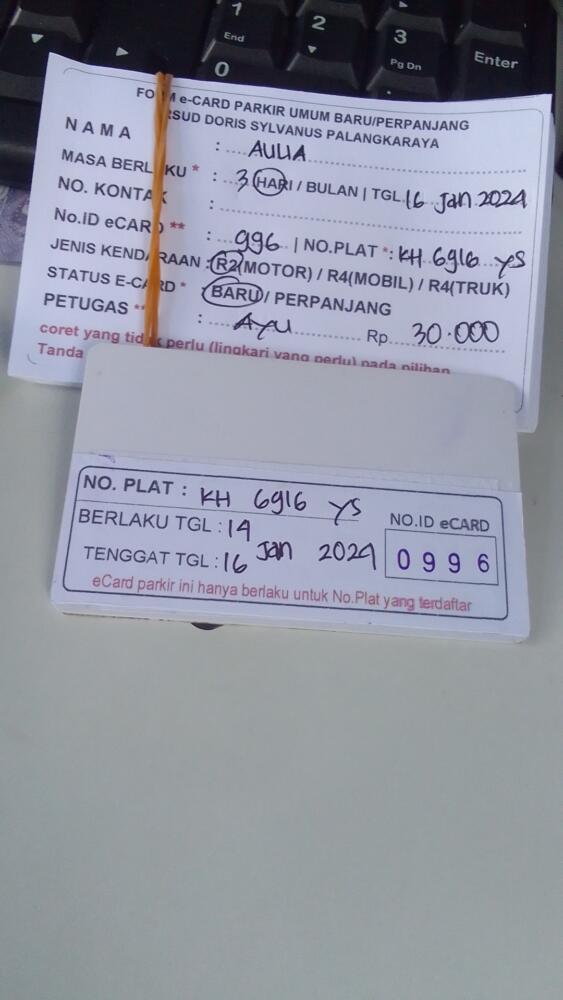 1
End
2
3
Pg Dn
0
Enter
e-CARD PARKIR UMUM BARU/PERPANJANG
RSUD DORIS SYLVANUS PALANGKARAYA
NAMA : AULIA
MASA BERLAKU * : 3 HARI / BULAN | TGL 16 Jan 2024
NO. KONTAK :
No.ID eCARD ** : 996 | NO.PLAT *: KH 6916 YS
JENIS KENDARAAN : R2(MOTOR) / R4(MOBIL) / R4(TRUK)
STATUS E-CARD * BARU / PERPANJANG
PETUGAS ** : AYU Rp 30.000
coret yang tidak perlu (lingkari yang perlu) pada pilihan
Tanda
NO. PLAT : KH 6916 YS
BERLAKU TGL : 14
NO.ID eCARD
TENGGAT TGL : 16 Jan 2024
0996
eCard parkir ini hanya berlaku untuk No.Plat yang terdaftar